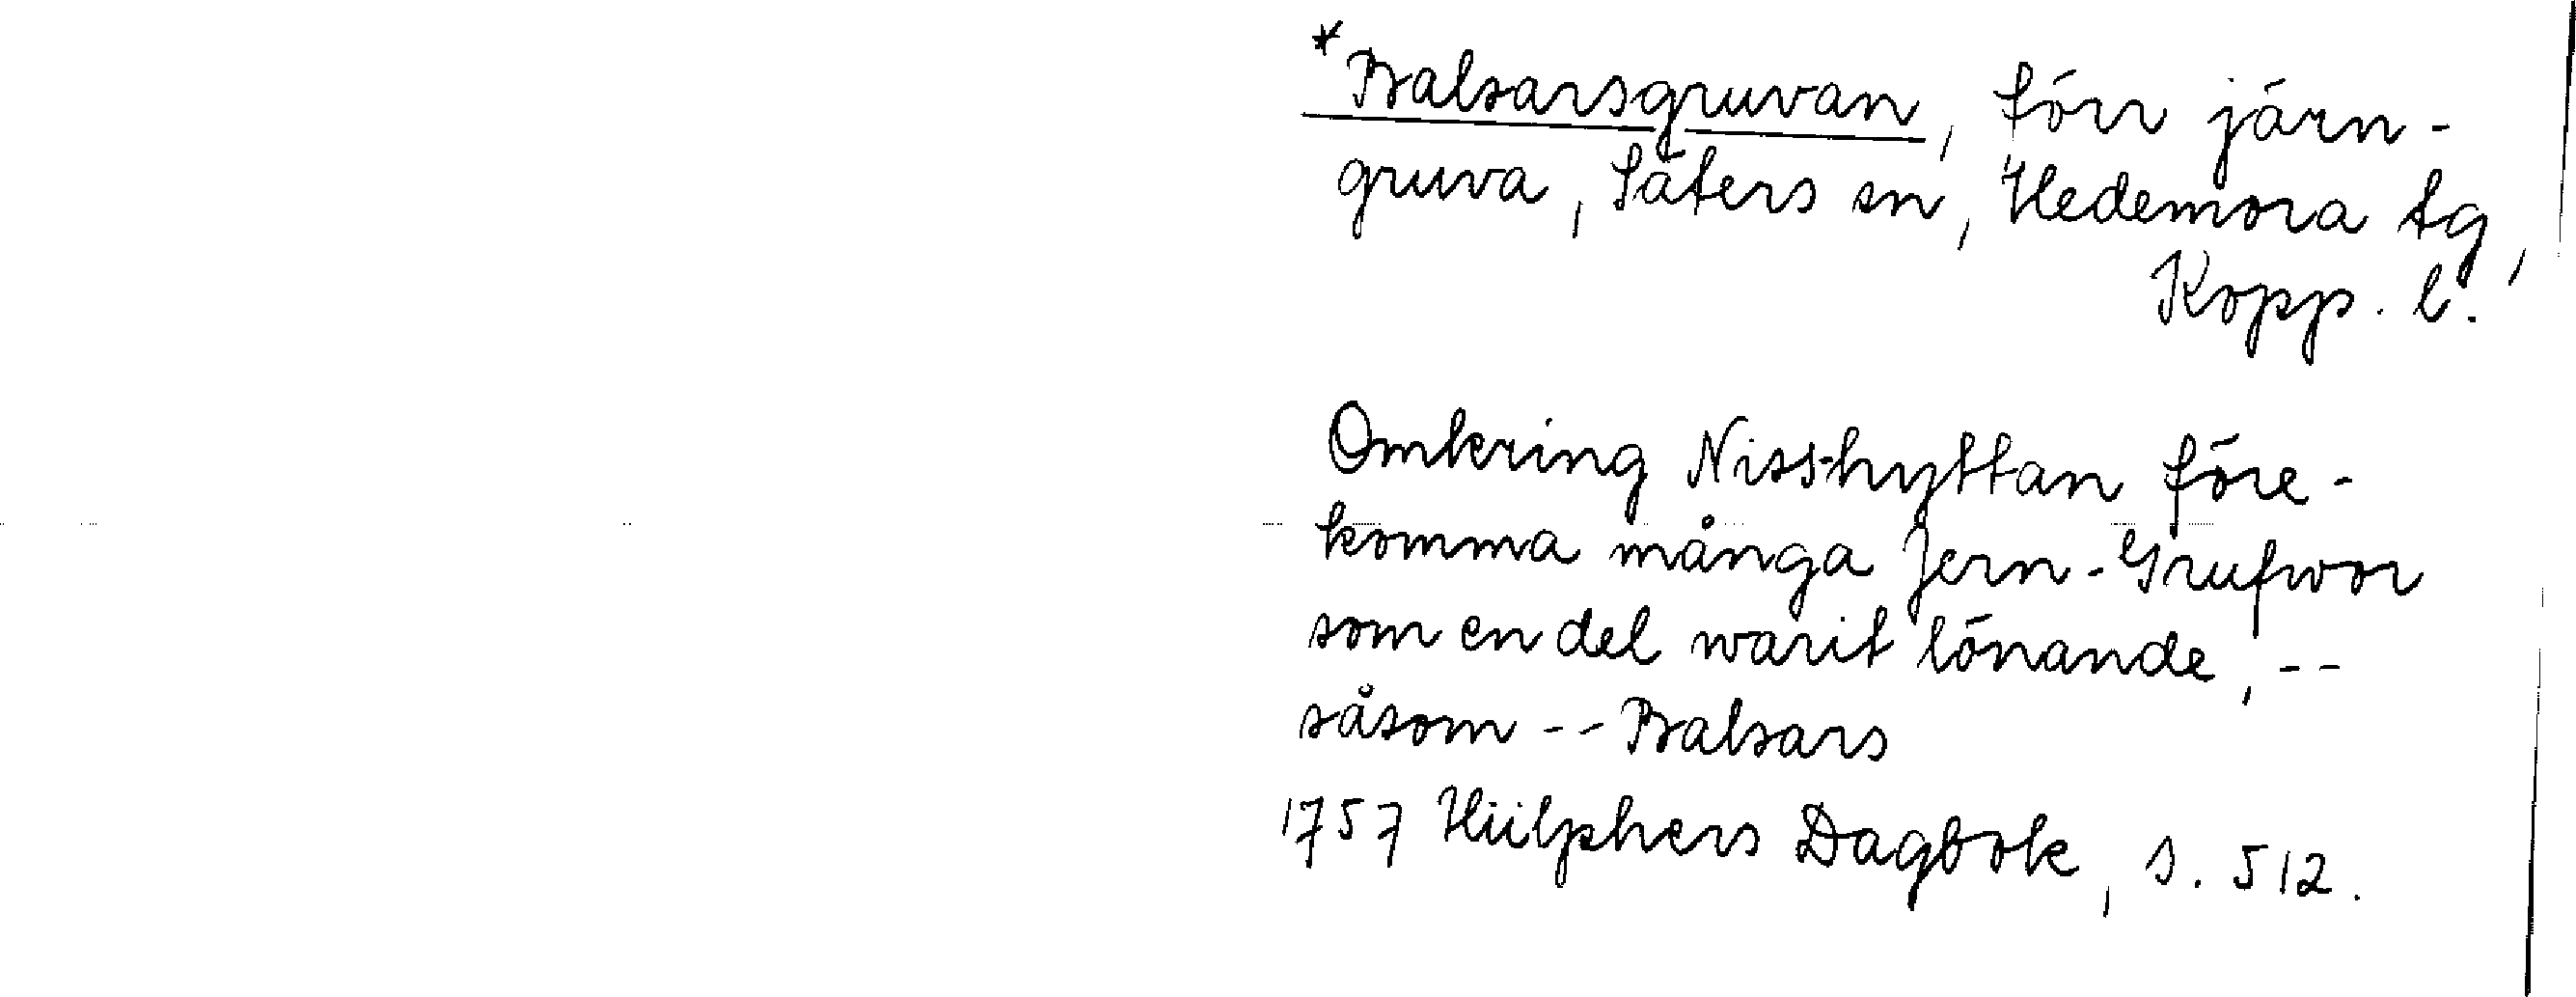 *Balsarsgruvan, förr järn-
gruva, Säters sn, Hedemora tg,
Kopp. l.
Omkring Nisshyttan före-
komma många Jern-Grufwor
som en del warit lönande, --
såsom -- Balsars
1757 Hülphers Dagbok, s. 512.